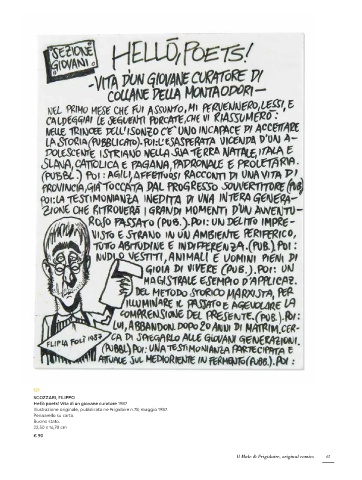 SEZIONE
GIOVANI
HELLŌ, POETS!
-VITA D'UN GIOVANE CURATORE DI
COLLANE DELLA MONTADORI-
NEL PRIMO MESE CHE FUI ASSUNTO, MI PERVENNERO, LESSI, E
CALDEGGIAI LE SEGUENTI PORCATE, CHE VI RIASSUMERŌ:
NELLE TRINCEE DELL'ISONZO C'E' UNO INCAPACE DI ACCETTARE
LA STORIA (PUBBLICATO). POI: L'ESASPERATA VICENDA D'UN A-
DOLESCENTE ISTRIANO NELLA SUA TERRA NATALE, ITALA E
SLAVA, CATTOLICA E PAGANA, PADRONALE E PROLETARIA.
(PUBBL.) POI: AGILI, AFFETTUOSI RACCONTI DI UNA VITA DI
PROVINCIA, GIA' TOCCATA DAL PROGRESSO SOVVERTITORE (PUB)
POI: LA TESTIMONIANZA INEDITA DI UNA INTERA GENERA-
ZIONE CHE RITROVERA' I GRANDI MOMENTI D'UN AVVENTU-
ROSO PASSATO (PUB.). POI: UN DELITTO IMPRE-
VISTO E STRANO IN UN AMBIENTE PERIFERICO,
TUTTO ABITUDINE E INDIFFERENZA. (PUB.). POI:
NUDI O VESTITI, ANIMALI E UOMINI PIENI DI
GIOIA DI VIVERE (PUB.). POI: UN
MAGISTRALE ESEMPIO D'APPLICAZ.
DEL METODO STORICO MARXISTA, PER
ILLUMINARE IL PASSATO E AGEVOLARE LA
COMPRENSIONE DEL PRESENTE. (PUB.). POI:
LUI, ABBANDON. DOPO 20 ANNI DI MATRIM, CER-
CA DI SPIEGARLO ALLE GIOVANI GENERAZIONI.
(PUBBL) POI: UNA TESTIMONIANZA PARTECIPATA E
ATTUALE SUL MEDIORIENTE IN FERMENTO (PUBB.). POI:
1987
SCOZZARI, FILIPPO
Hello poets! Vita di un giovane curatore 1987
Illustrazione originale, pubblicata ne Frigidaire n.78, maggio 1987.
Pennarello su carta.
Buono stato.
€ 90
Il Male & Frigidaire, original comics
61